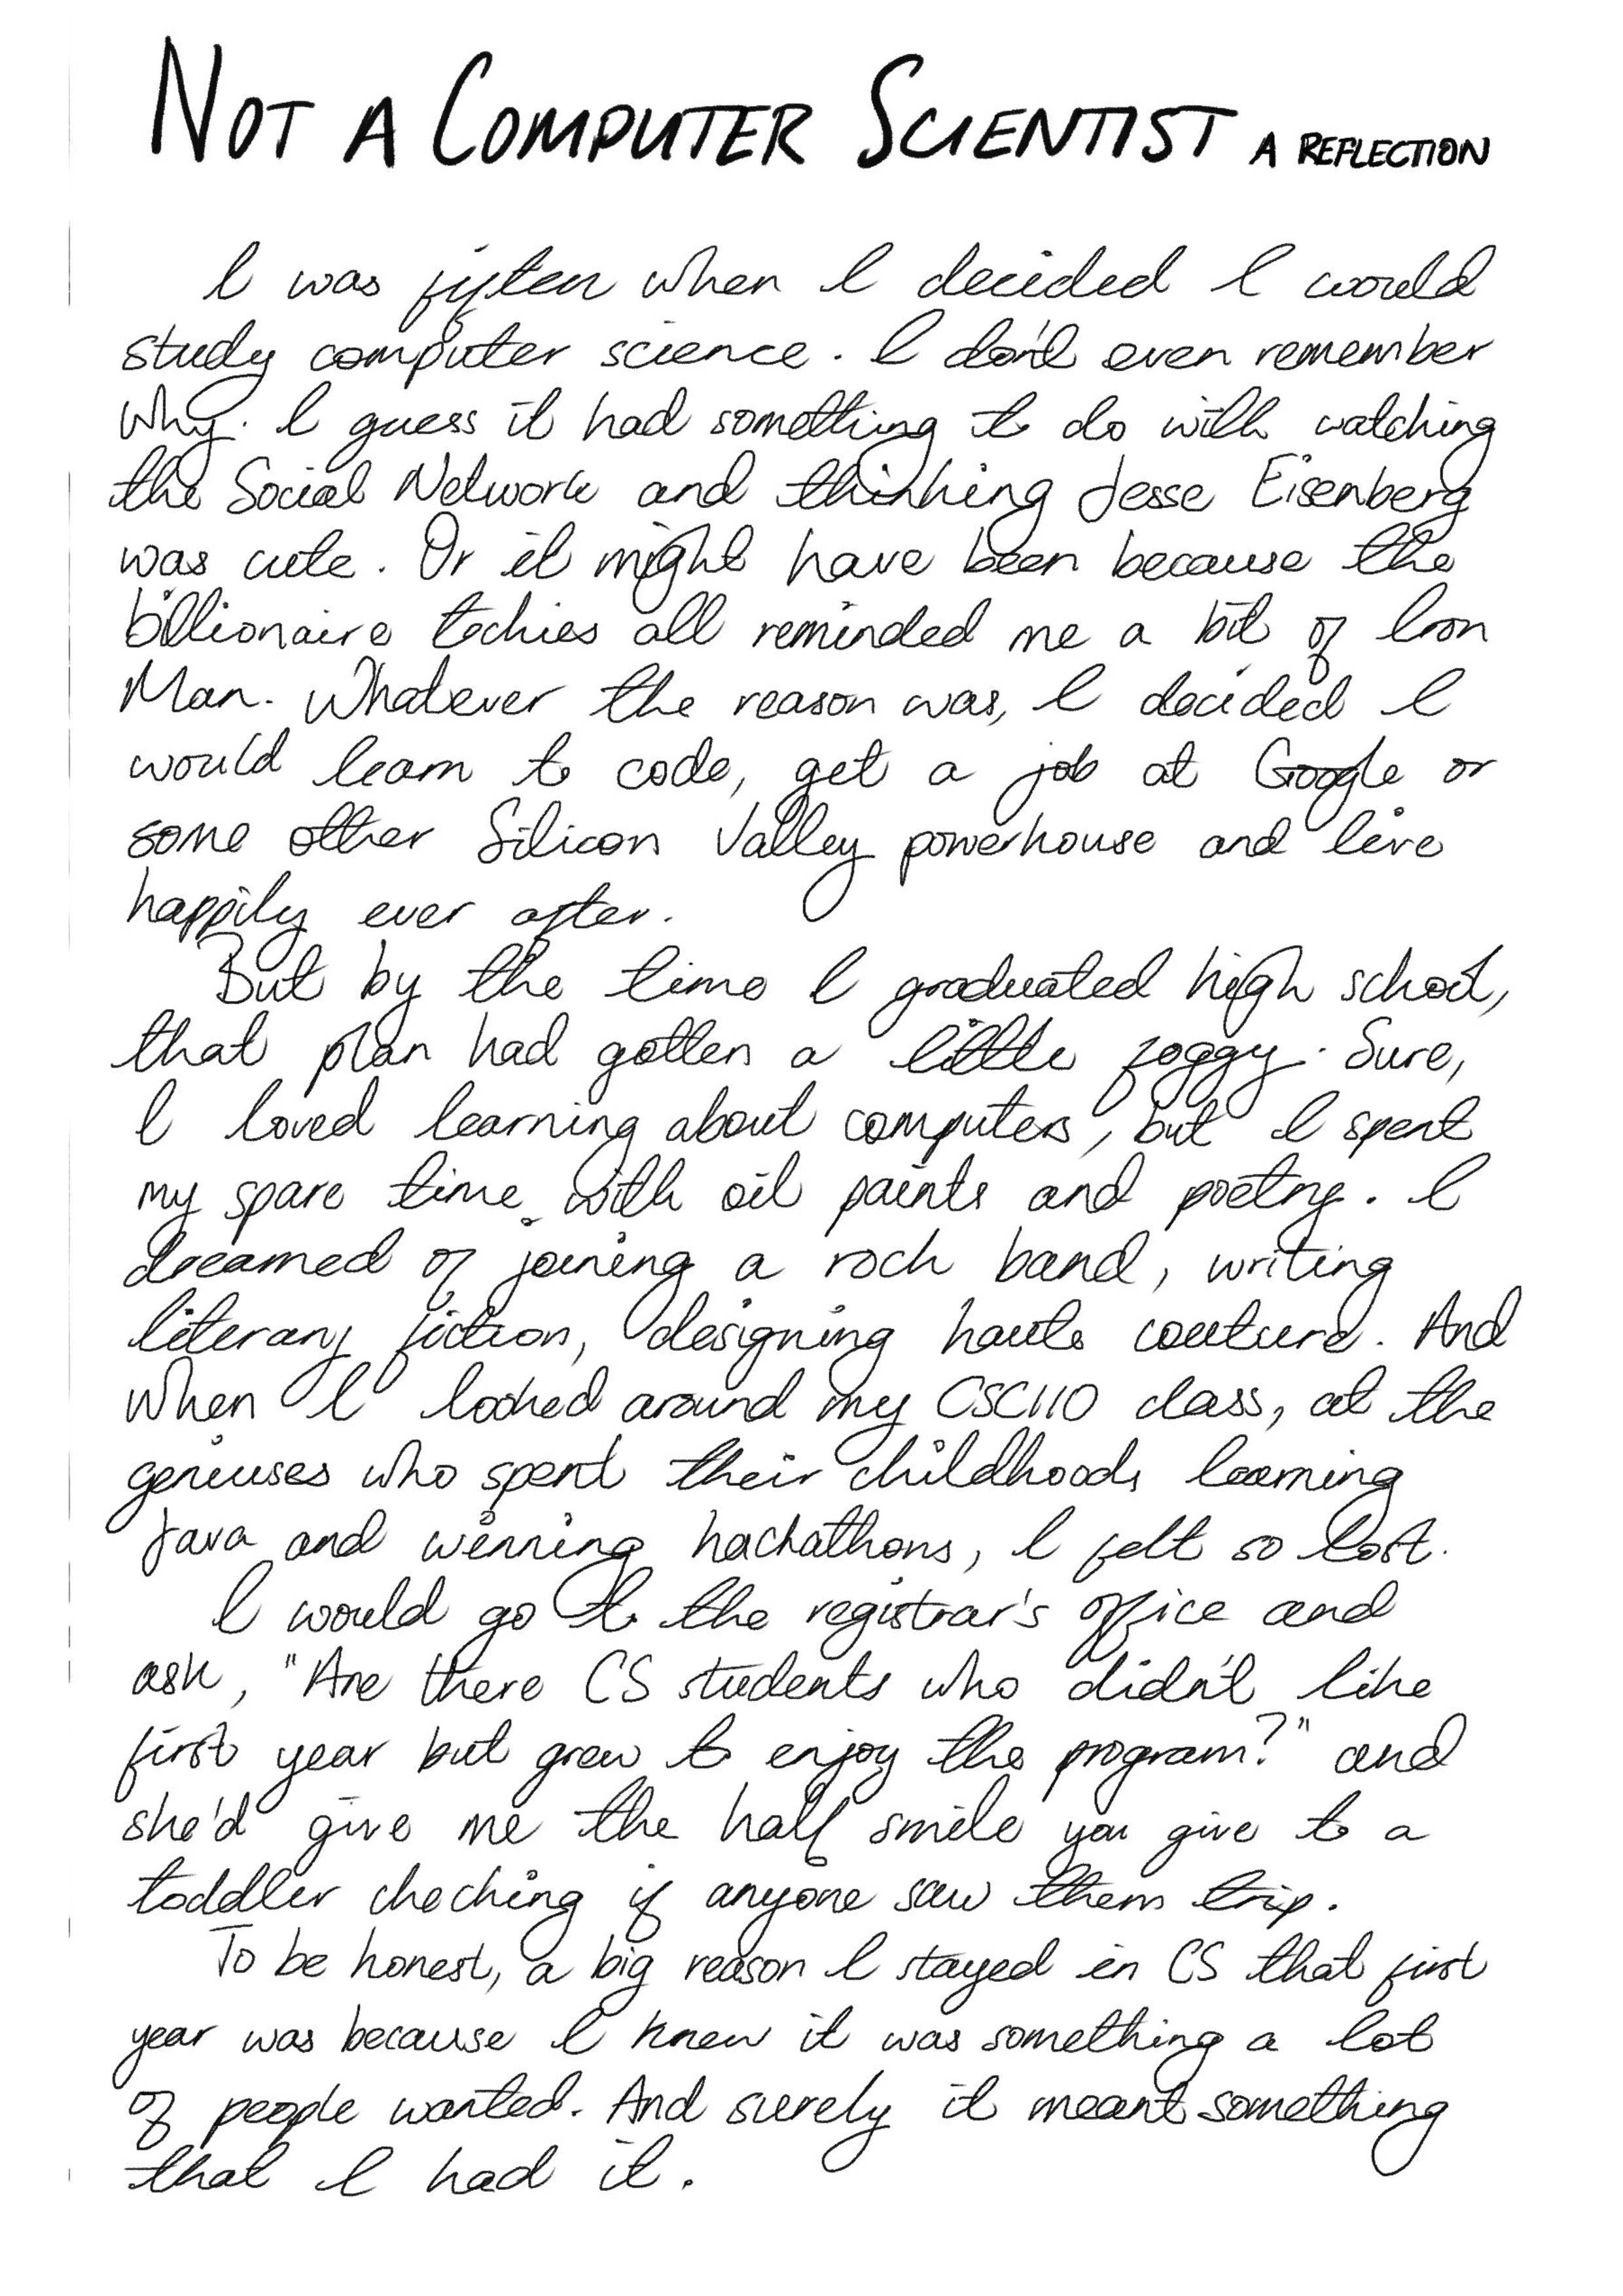 NOT A COMPUTER SCIENTIST A REFLECTION
I was fiften when I decided I would
study computer science. I don't even remember
why. I guess it had something to do with watching
the Social Network and thinking Jesse Eisenberg
was cute. Or it might have been because the
billionaire techies all reminded me a bit of Iron
Man. Whatever the reason was, I decided I
would learn to code, get a job at Google or
some other Silicon Valley powerhouse and live
happily ever after.
But by the time I graduated high school,
that plan had gotten a little foggy. Sure,
I loved learning about computers, but I spent
my spare time with oil paints and poetry. I
dreamed of joining a rock band, writing
literary fiction, designing haute couture. And
when I looked around my CSC110 class, at the
geniuses who spent their childhoods learning
Java and winning hackathons, I felt so lost.
I would go to the registrar's office and
ask, "Are there CS students who didn't like
first year but grew to enjoy the program?" and
she'd give me the half smile you give to a
toddler checking if anyone saw them trip.
To be honest, a big reason I stayed in CS that first
year was because I knew it was something a lot
of people wanted. And surely it meant something
that I had it.